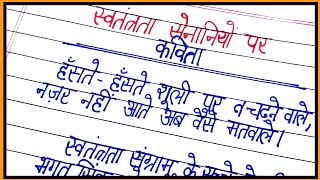 स्वतंत्रता सेनानियों पर
कविता
हँसते-हँसते शूली पर चढ़ने वाले,
नज़र नहीं आते अब वैसे मतवाले।
स्वतंत्रता संग्राम के